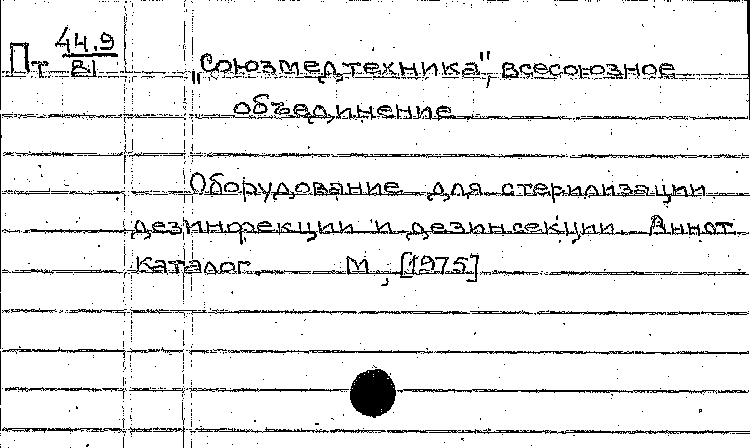 Пт 44.9
81
"Союзмедтехника", всесоюзное
объединение
Оборудование для стерилизации
дезинфекции и дезинсекции. Аннот.
каталог. М, [1975]